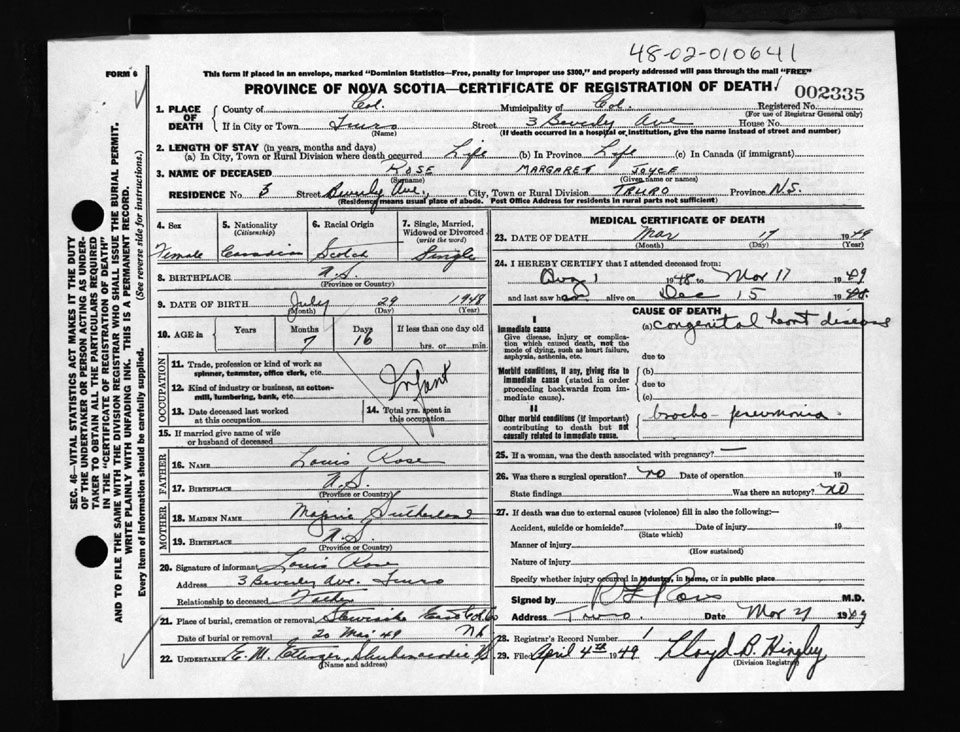 48-02-010641
FORM 6
This form if placed in an envelope, marked "Dominion Statistics—Free, penalty for improper use $300," and properly addressed will pass through the mail "FREE"
PROVINCE OF NOVA SCOTIA—CERTIFICATE OF REGISTRATION OF DEATH 002335
1. PLACE OF DEATH County of Col. Municipality of Col. Registered No.
(For use of Registrar General only)
If in City or Town Truro Street 3 Beverly Ave House No.
(Name) (If death occurred in a hospital or institution, give the name instead of street and number)
2. LENGTH OF STAY (in years, months and days)
(a) In City, Town or Rural Division where death occurred Life (b) In Province Life (c) In Canada (if immigrant)
3. NAME OF DECEASED ROSE MARGARET JOYCE
(Surname) (Given name or names)
RESIDENCE No. 3 Street Beverly Ave. City, Town or Rural Division TRURO Province N.S.
(Residence means usual place of abode. Post Office Address for residents in rural parts not sufficient)
4. Sex 5. Nationality (Citizenship) 6. Racial Origin 7. Single, Married, Widowed or Divorced (write the word)
Female Canadian Scotch Single
8. BIRTHPLACE N.S.
(Province or Country)
9. DATE OF BIRTH July 29 1948
(Month) (Day) (Year)
10. AGE in Years Months Days If less than one day old
7 16 hrs. or min.
OCCUPATION
11. Trade, profession or kind of work as spinner, teamster, office clerk, etc.
12. Kind of industry or business, as cotton-mill, lumbering, bank, etc.
Infant
13. Date deceased last worked at this occupation 14. Total yrs. spent in this occupation
15. If married give name of wife or husband of deceased
FATHER
16. NAME Louis Rose
17. BIRTHPLACE N.S.
(Province or Country)
MOTHER
18. MAIDEN NAME Majorie Sutherland
19. BIRTHPLACE N.S.
(Province or Country)
20. Signature of informant Louis Rose
Address 3 Beverly Ave. Truro
Relationship to deceased Father
21. Place of burial, cremation or removal Stewiacke East Col. Co
Date of burial or removal 20 Mar 49 N.S.
22. UNDERTAKER E. M. Ettinger Shubenacadie N.S.
(Name and address)
MEDICAL CERTIFICATE OF DEATH
23. DATE OF DEATH Mar 17 1949
(Month) (Day) (Year)
24. I HEREBY CERTIFY that I attended deceased from:
Aug 1 1948 to Mar 17 1949
and last saw her alive on Dec 15 1948
CAUSE OF DEATH
I
Immediate cause (a) congenital heart disease
Give disease, injury or complication which caused death, not the mode of dying, such as heart failure, asphyxia, asthenia, etc.
due to
Morbid conditions, if any, giving rise to immediate cause (stated in order proceeding backwards from immediate cause).
(b)
due to
(c)
II
Other morbid conditions (if important) contributing to death but not causally related to immediate cause.
broncho-pneumonia
25. If a woman, was the death associated with pregnancy? —
26. Was there a surgical operation? no Date of operation 19
State findings Was there an autopsy? no
27. If death was due to external causes (violence) fill in also the following:—
Accident, suicide or homicide? Date of injury 19
(State which)
Manner of injury
(How sustained)
Nature of injury
Specify whether injury occurred in industry, in home, or in public place
Signed by M.D.
Address Truro. Date Mar 21 1949
28. Registrar's Record Number 1
29. Filed April 4th 1949 Lloyd B. Hingley
(Division Registrar)
SEC. 46—VITAL STATISTICS ACT MAKES IT THE DUTY
OF THE UNDERTAKER OR PERSON ACTING AS UNDER-
TAKER TO OBTAIN ALL THE PARTICULARS REQUIRED
IN THE "CERTIFICATE OF REGISTRATION OF DEATH"
AND TO FILE THE SAME WITH THE DIVISION REGISTRAR WHO SHALL ISSUE THE BURIAL PERMIT.
WRITE PLAINLY WITH UNFADING INK. THIS IS A PERMANENT RECORD.
Every item of information should be carefully supplied. (See reverse side for instructions).